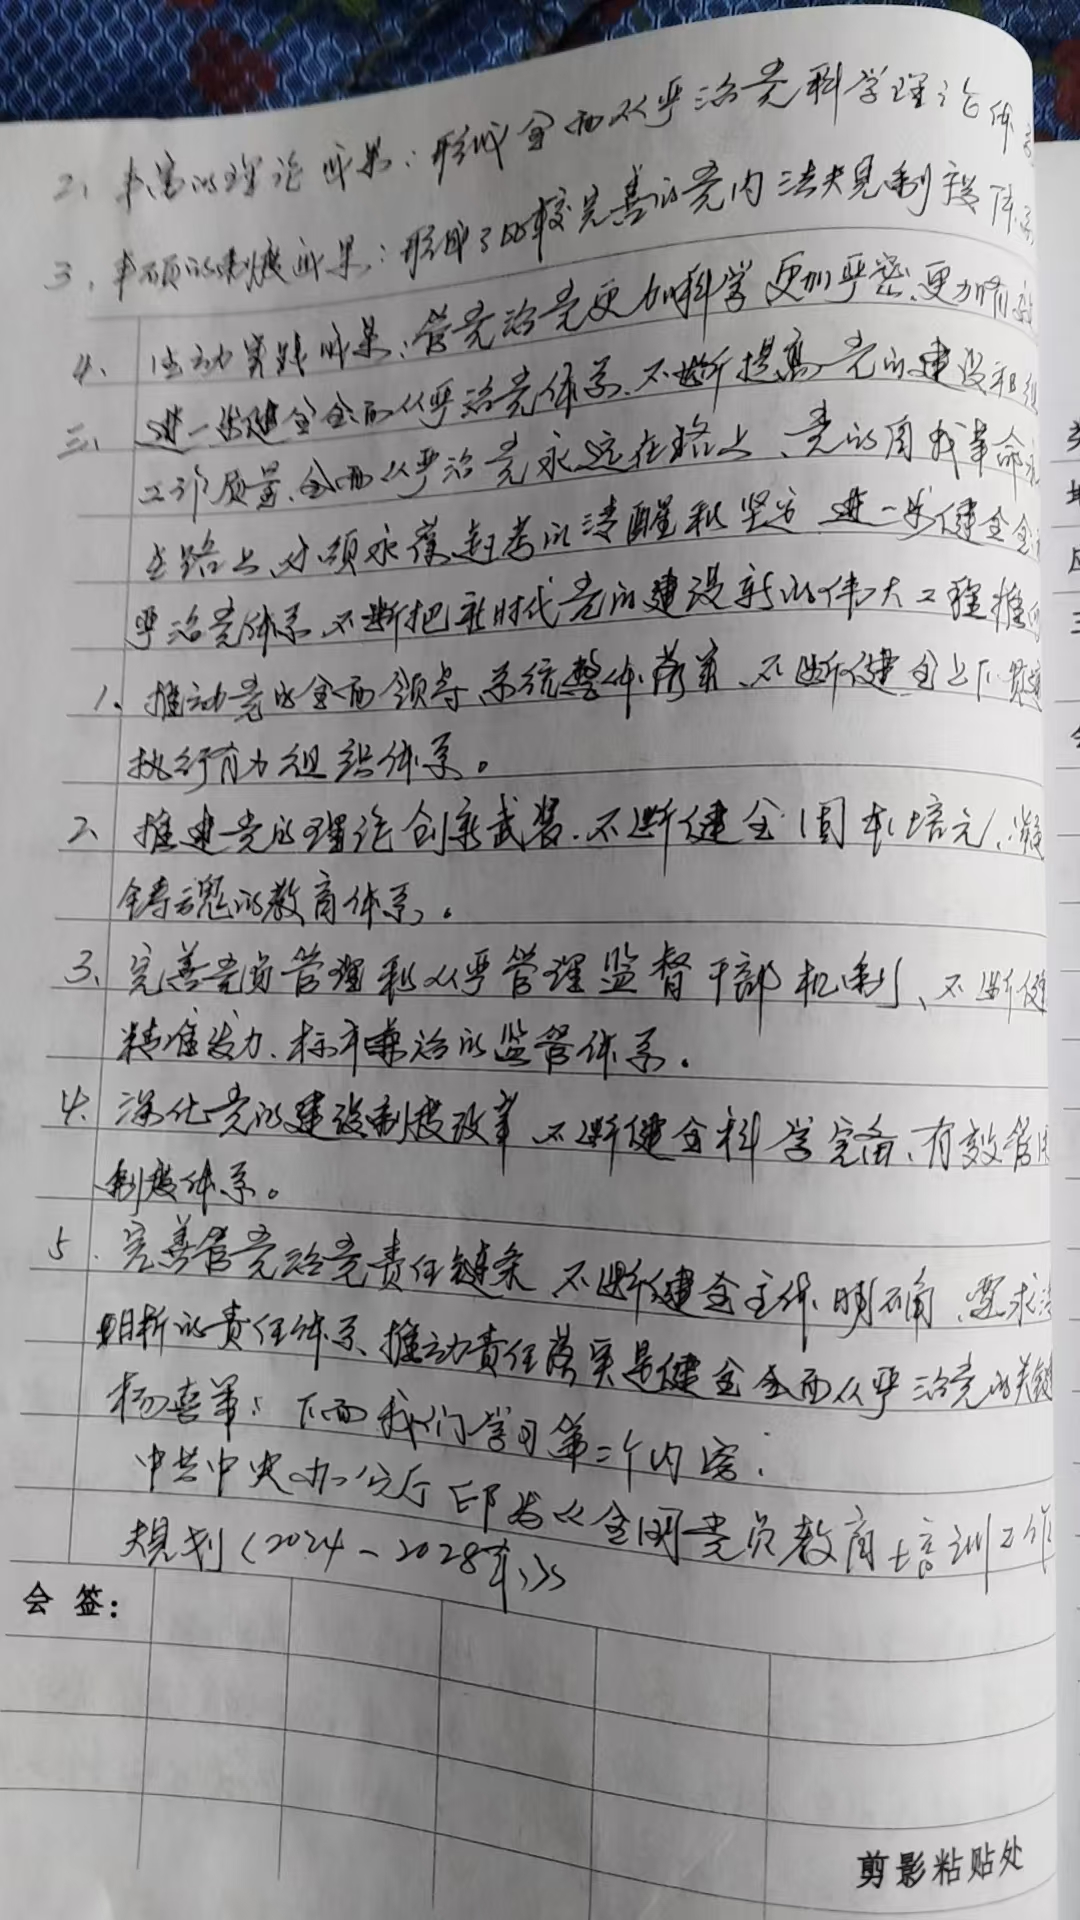 2、丰富的理论成果：形成全面从严治党科学理论体系
3、丰硕的制度成果：形成了比较完善的党内法规制度体系
4、生动实践成果：管党治党更加科学、更加严密、更加有效
三、进一步健全全面从严治党体系、不断提高党的建设和组
工作质量、全面从严治党永远在路上、党的自我革命永
在路上、必须永葆赶考的清醒和坚定 进一步健全全
严治党体系、不断把新时代党的建设新的伟大工程推向
1、推动党的全面领导、系统整体落实、不断健全上下贯通
执行有力组织体系。
2、推进党的理论创新武装、不断健全固本培元、凝
铸魂的教育体系。
3、完善党员管理和从严管理监督干部机制、不断健
精准发力、标本兼治的监管体系。
4、深化党的建设制度改革 不断健全科学完备、有效管用
制度体系。
5、完善管党治党责任链条 不断健全主体明确、要求清
明晰的责任体系、推动责任落实是健全全面从严治党的关键
杨喜军：下面我们学习第二个内容：
中共中央办公厅印发《全国党员教育培训工作
规划（2024-2028年）》
会签：
剪影粘贴处